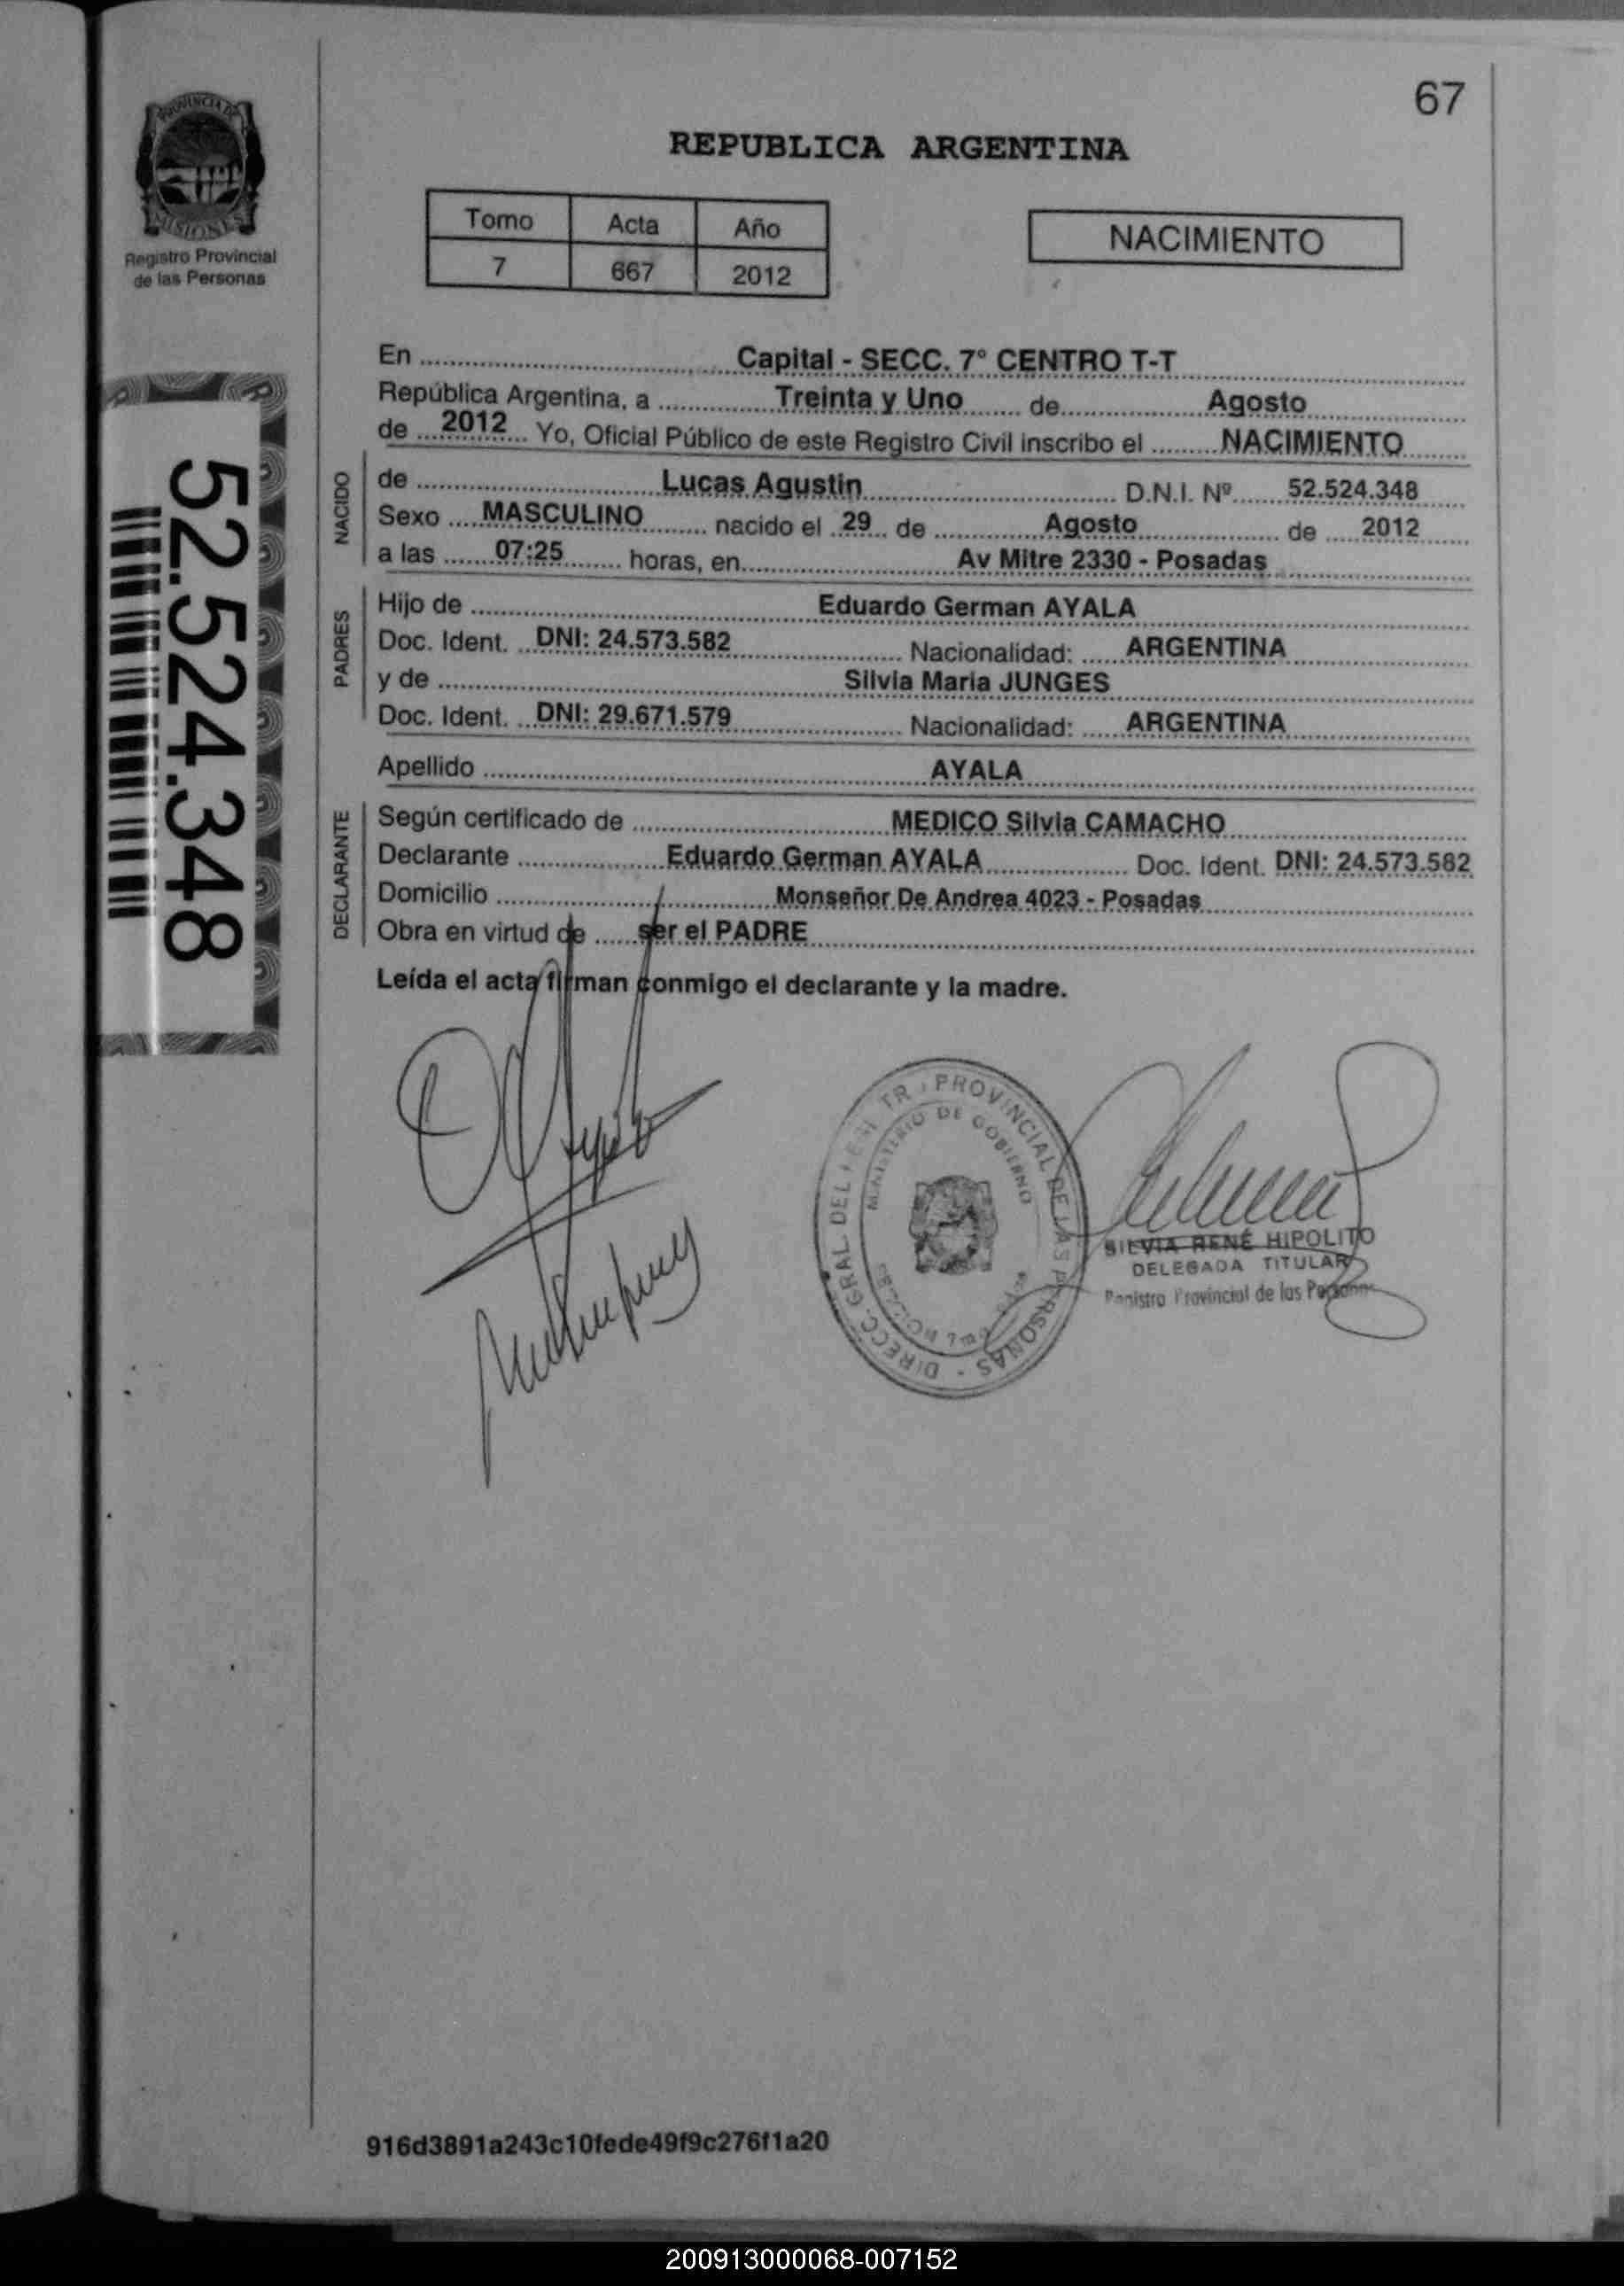 67
REPUBLICA ARGENTINA
PROVINCIA DE
MISIONES
Registro Provincial
de las Personas
Tomo Acta Año
7 667 2012
NACIMIENTO
52.524.348
En Capital - SECC. 7° CENTRO T-T
República Argentina, a Treinta y Uno de Agosto
de 2012 Yo, Oficial Público de este Registro Civil inscribo el NACIMIENTO
NACIDO
de Lucas Agustin D.N.I. Nº 52.524.348
Sexo MASCULINO nacido el 29 de Agosto de 2012
a las 07:25 horas, en Av Mitre 2330 - Posadas
PADRES
Hijo de Eduardo German AYALA
Doc. Ident. DNI: 24.573.582 Nacionalidad: ARGENTINA
y de Silvia Maria JUNGES
Doc. Ident. DNI: 29.671.579 Nacionalidad: ARGENTINA
Apellido AYALA
DECLARANTE
Según certificado de MEDICO Silvia CAMACHO
Declarante Eduardo German AYALA Doc. Ident. DNI: 24.573.582
Domicilio Monseñor De Andrea 4023 - Posadas
Obra en virtud de ser el PADRE
Leída el acta firman conmigo el declarante y la madre.
PROVINCIAL DE LAS PERSONAS - DIRECC. GRAL. DEL
MINISTERIO DE GOBIERNO
SILVIA RENÉ HIPOLITO
DELEGADA TITULAR
Registro Provincial de las Personas
916d3891a243c10fede49f9c276f1a20
200913000068-007152